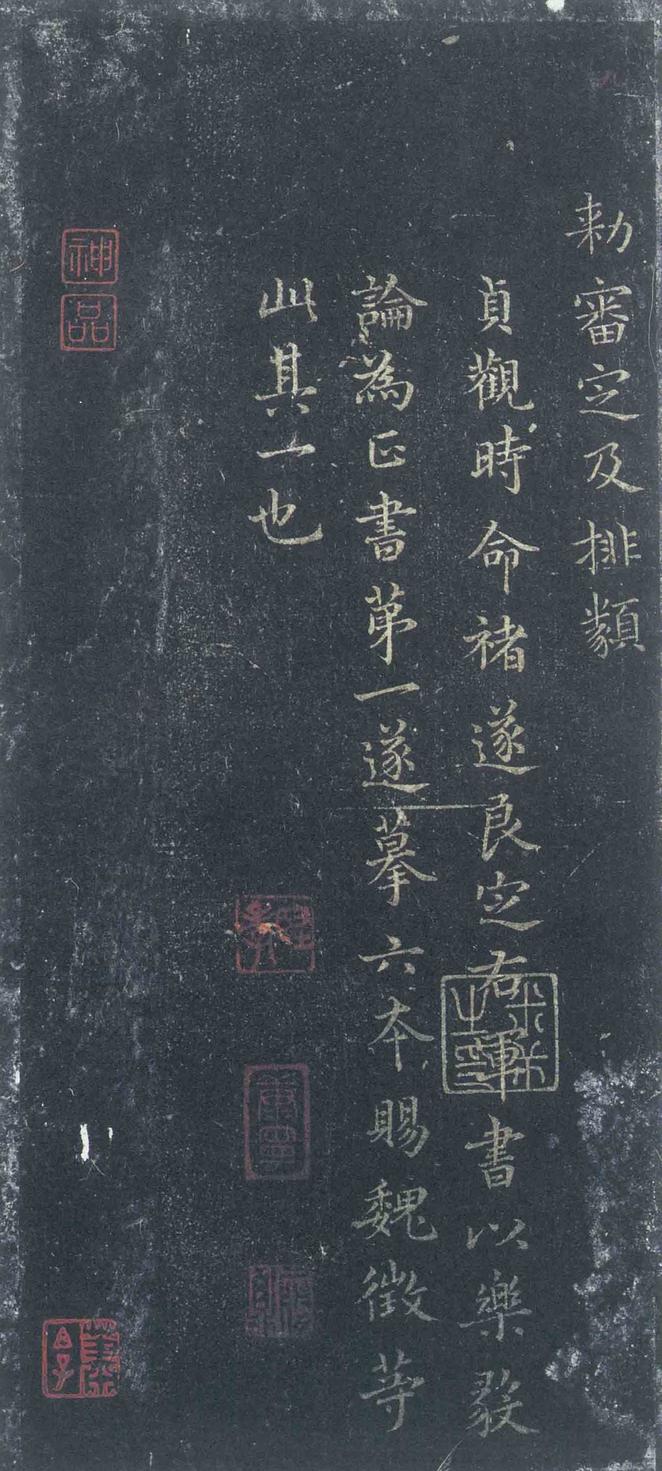 勑審定及排類
貞觀時命褚遂良定右軍書以樂毅
論為正書第一遂摹六本賜魏徵等
此其一也
神品